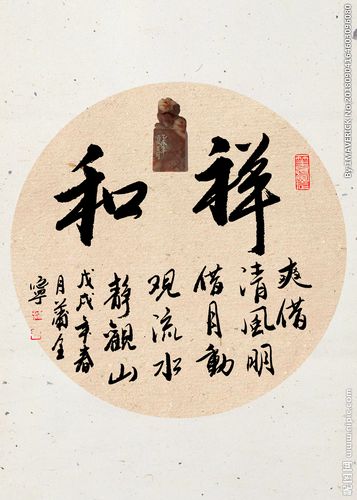 祥和
爽借
清風明
借月動
观流水
靜觀山
戊戌年春
月蕭全
寧
By:JTMAVERICK No:20180904164603095080
昵图网 www.nipic.com